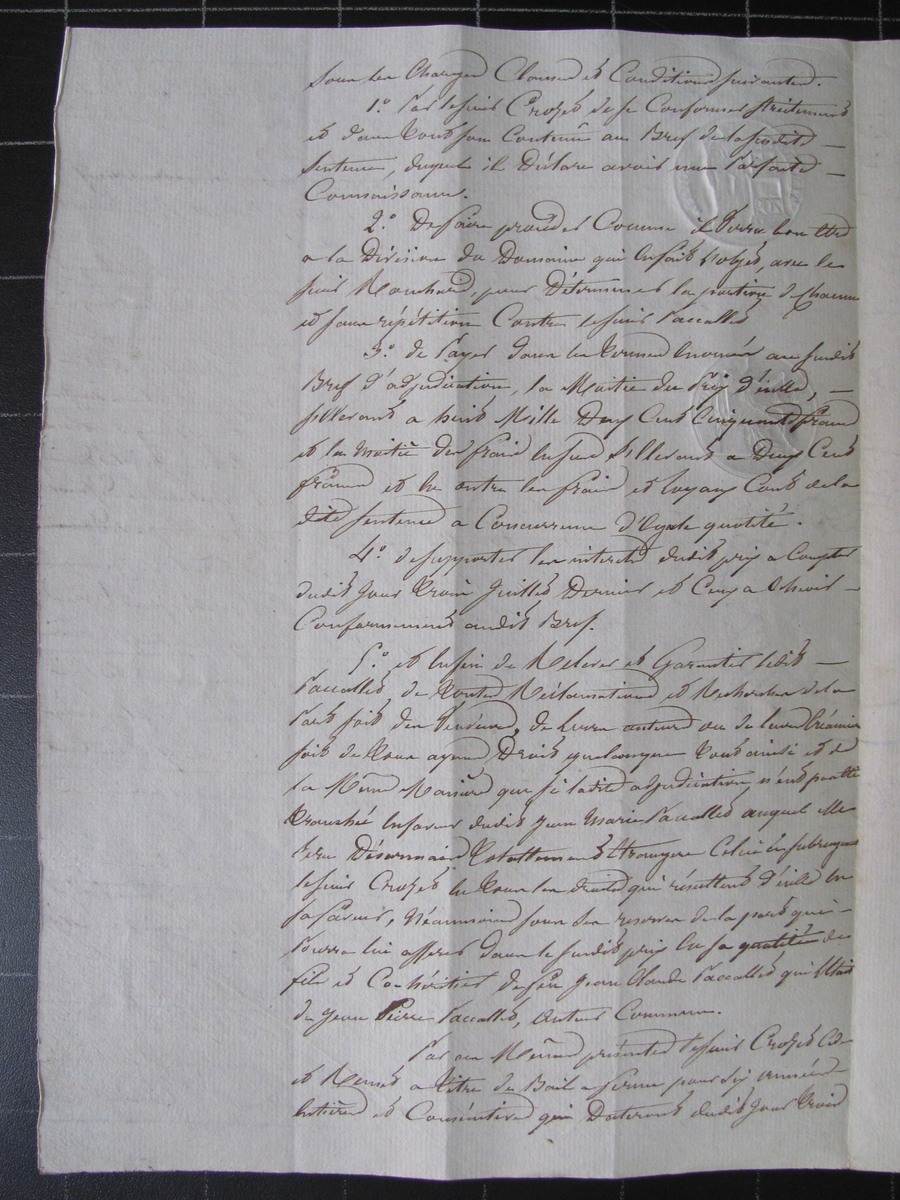 sous les Charges Clauses et Conditions suivantes.
1.° Par le sieur Crozet de se Conformer strictement
et dans tout son Contenû au Bref de la susdite
sentence, duquel il Déclare avoir une Parfaite
Connaissance.
2.° De faire procéder Comme il verra bon être
a la Division du Domaine qui en fait l'objet, avec le
sieur Mouchard, pour Déterminer la portion de chacun
et sans répétition Contre le sieur Paccallet
3.° de Payer dans les termes énoncés au susdit
Bref d'adjudication, la Moitié du Prix d'icelle,
s'Elevant a huit Mille Deux Cent Cinquante francs
et la Moitié des frais en sus s'Elevant a Deux Cent
francs et en outre les frais et loyaux Couts de la
dite sentence a Concurrence d'Egale quotité.
4.° de supporter les interets dudit prix a Compter
dudit Jour trois Juillet Dernier et Ceux a Echoir
Conformement audit Bref.
5.° et Enfin de Relever et Garantir ledit
Paccallet de toutes Réclamations et Recherches de la
Part soit des Vendeurs, de leurs auteurs ou de leurs Créanciers
soit de tous ayans Droit quelconque tout ainsi et de
la Même Manière que si ladite adjudication, n'eut pas été
tranchée En faveur dudit Jean Marie Paccallet auquel elle
sera Désormais totallement Etrangere Celui ci subrogeant
le sieur Crozet En tous les droits qui résultent d'icelle en
sa faveur, Néanmoins sous la reserve de la part qui
Pourra lui afferer dans le susdit prix En sa qualité de
fils et Cohéritier de feu Jean Claude Paccallet qui l'Etait
de Jean Pierre Paccallet, auteur Commun.
Par ces Mêmes présentes le sieur Crozet Cède
et Remet a titre de Bail a ferme pour six années
Entières et Consécutives qui Dateront dudit Jour trois